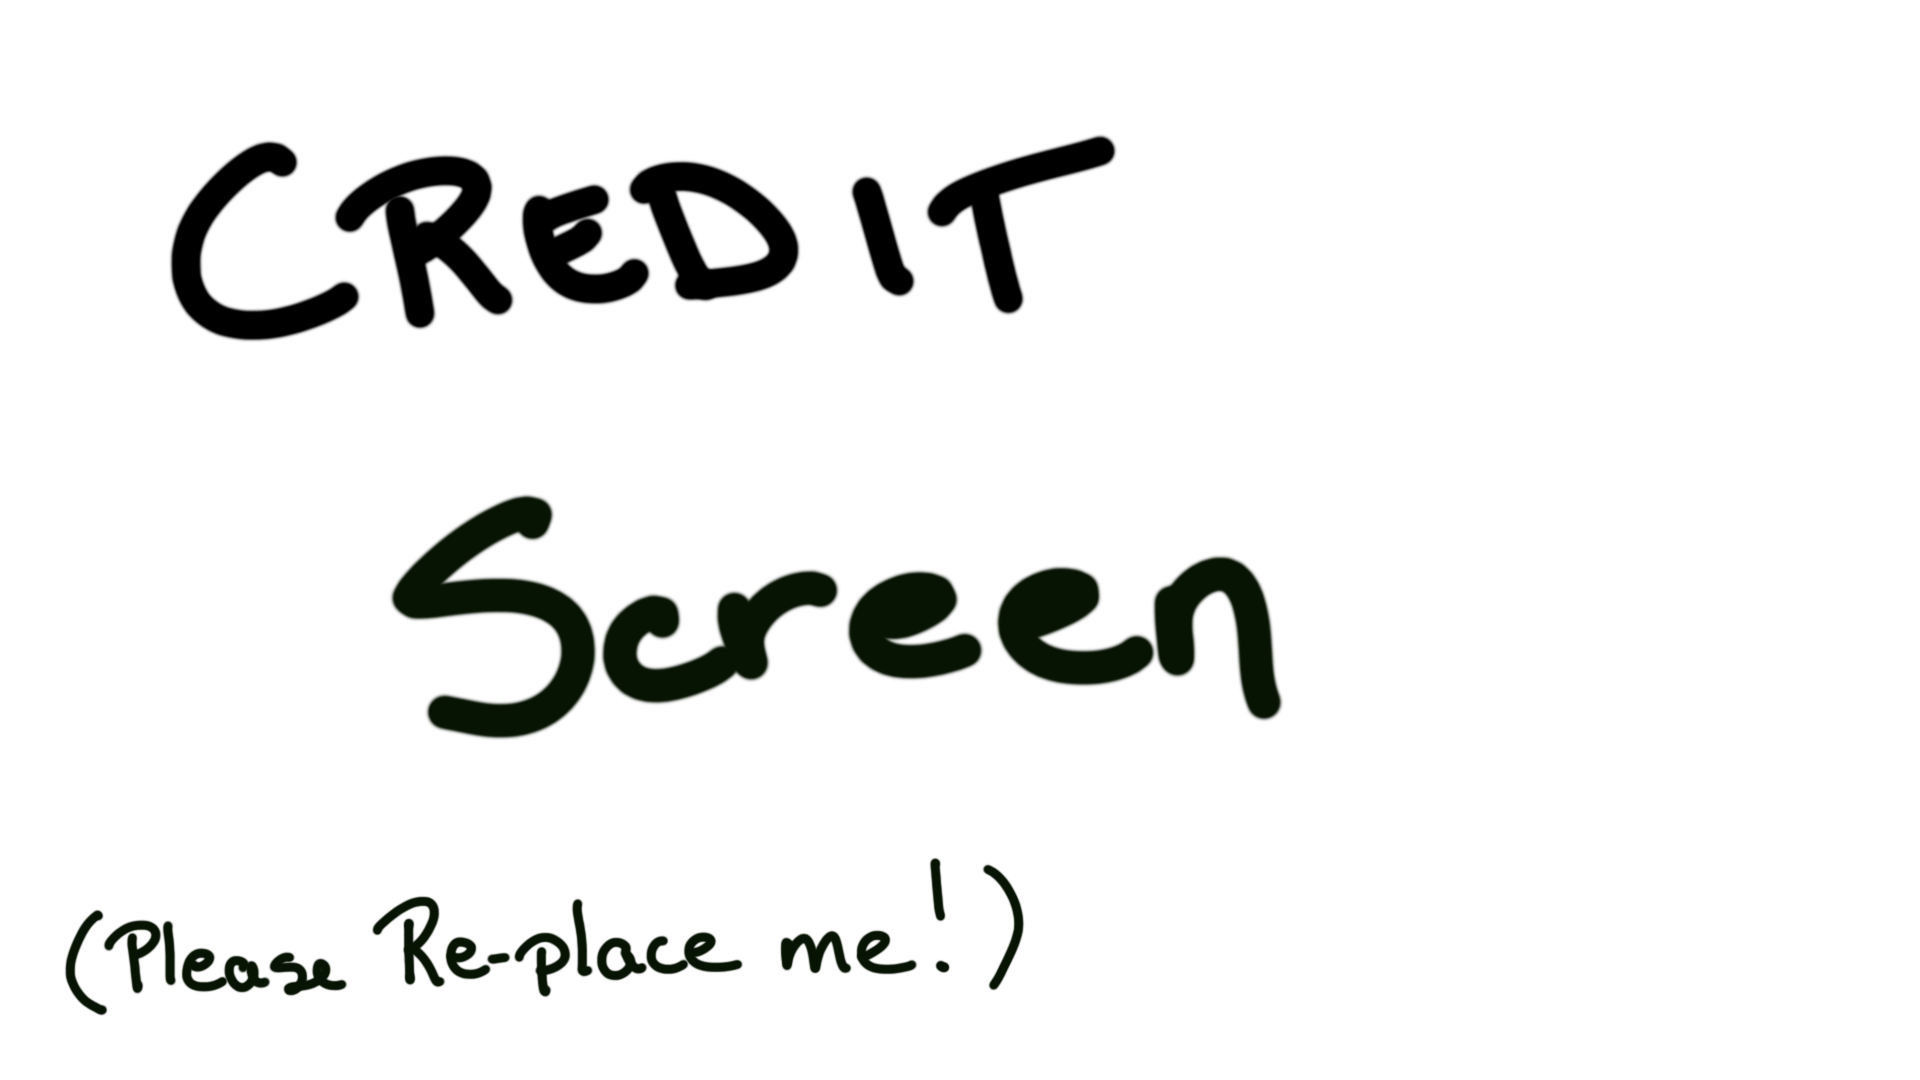 CREDIT
Screen
(Please Re-place me!)